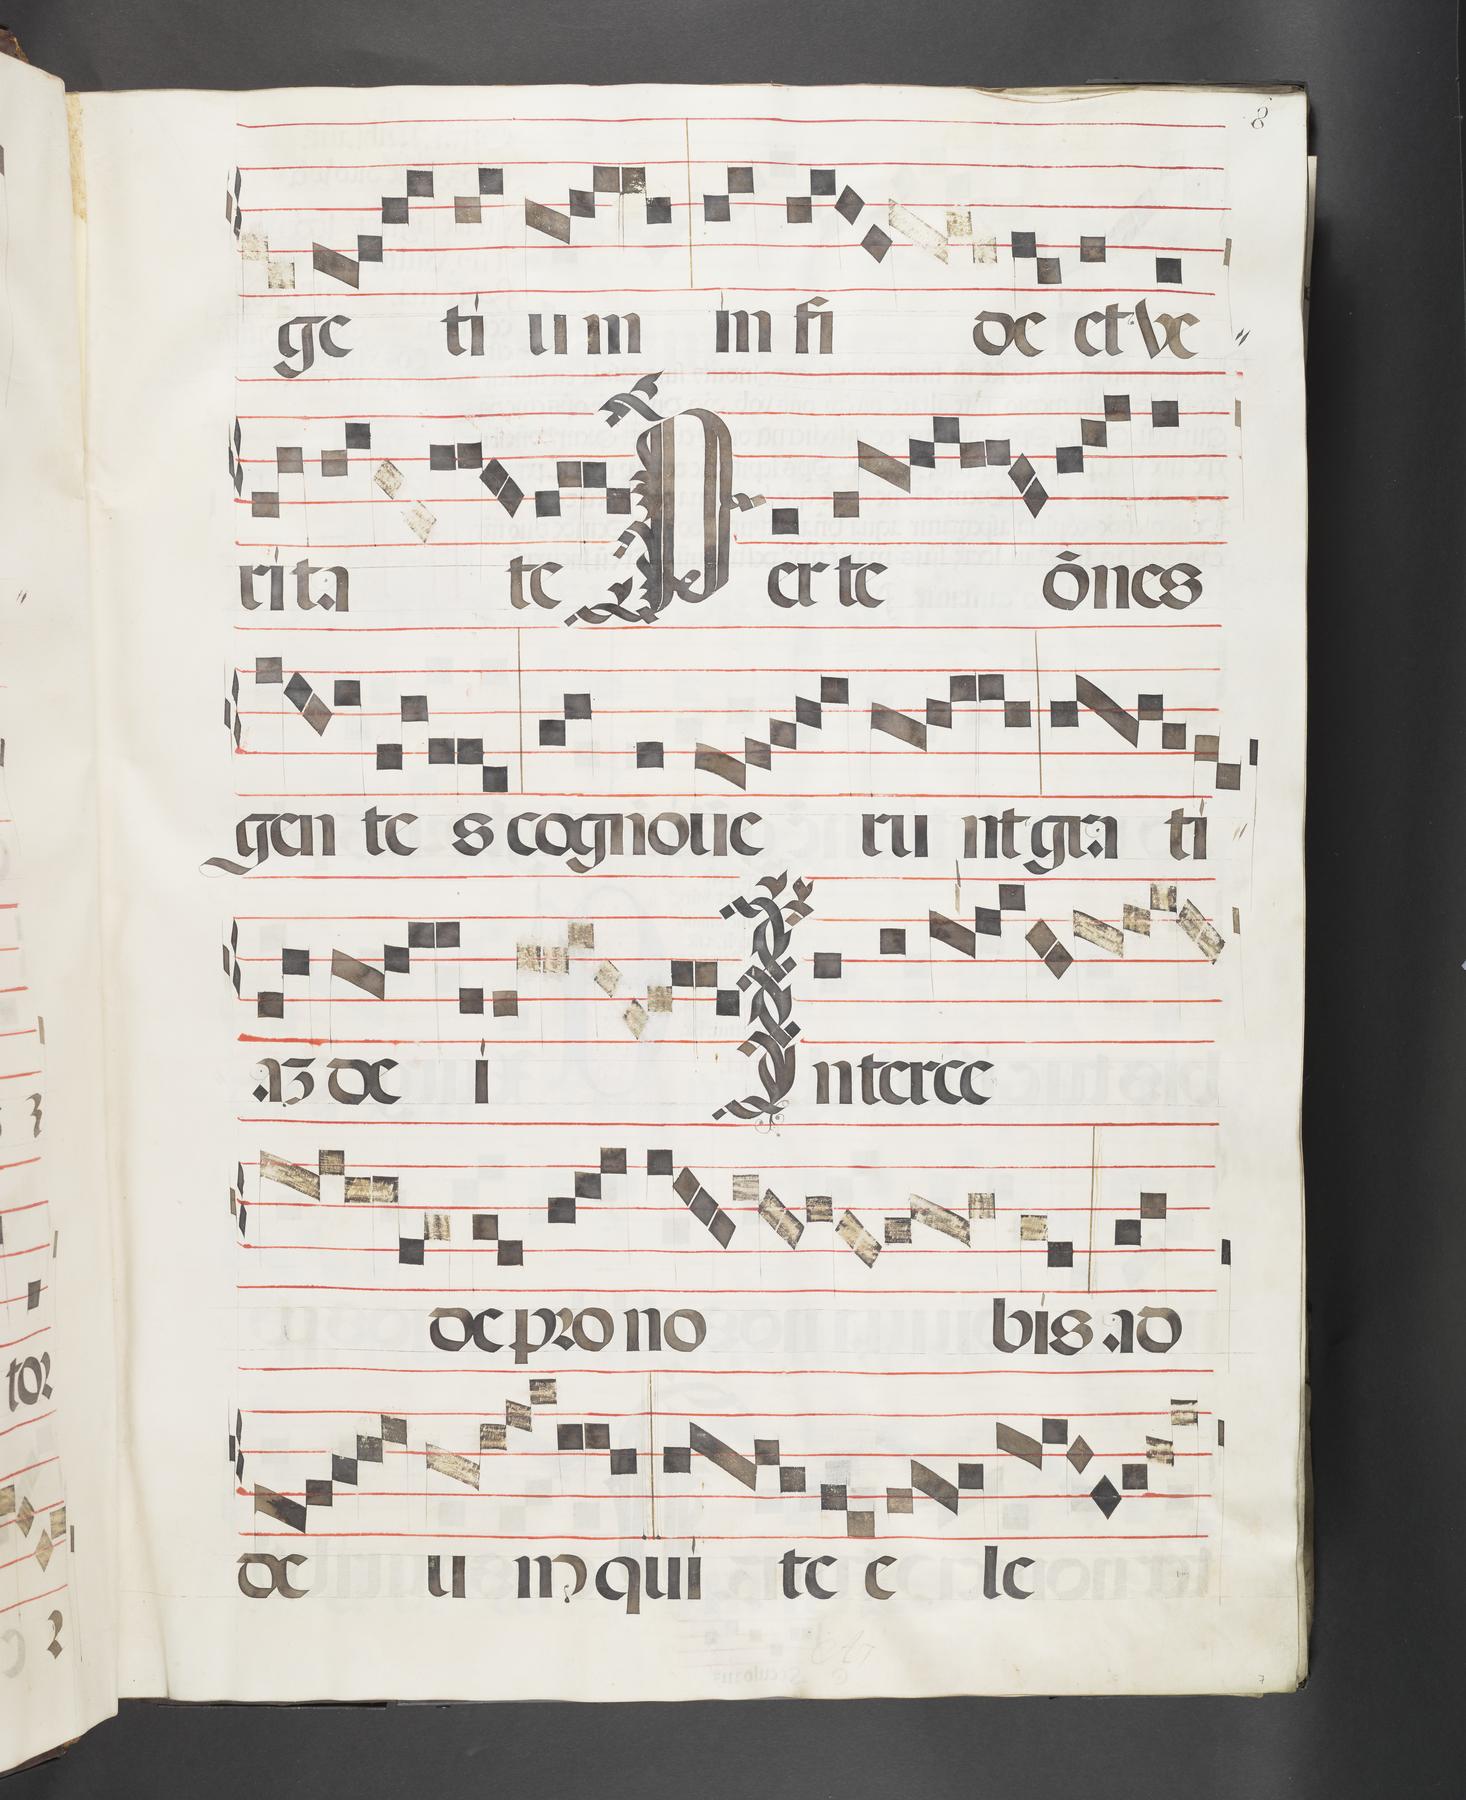 8
ge ti um in fi de et ve
rita te Per te ões
gen te s cognoue ru nt gra ti
az de i Interce
de pro no bis ad
de u m qui te e le